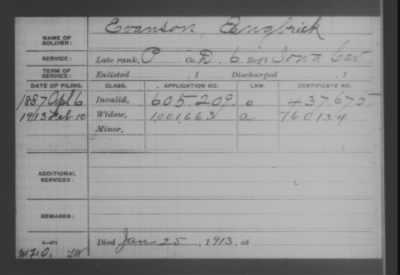 NAME OF SOLDIER: Evanson, Engbrick
SERVICE: Late rank, P Co. D, 6 Reg't Iowa Cav
TERM OF SERVICE: Enlisted , 1 Discharged , 1
DATE OF FILING. CLASS. APPLICATION NO. LAW. CERTIFICATE NO.
1887 Apl 6 Invalid, 605.209. 437.675
1913 Feb 10 Widow, 1001,663 a 760134
Minor,
ADDITIONAL SERVICES:
REMARKS:
Died Jan 25, 1913, at